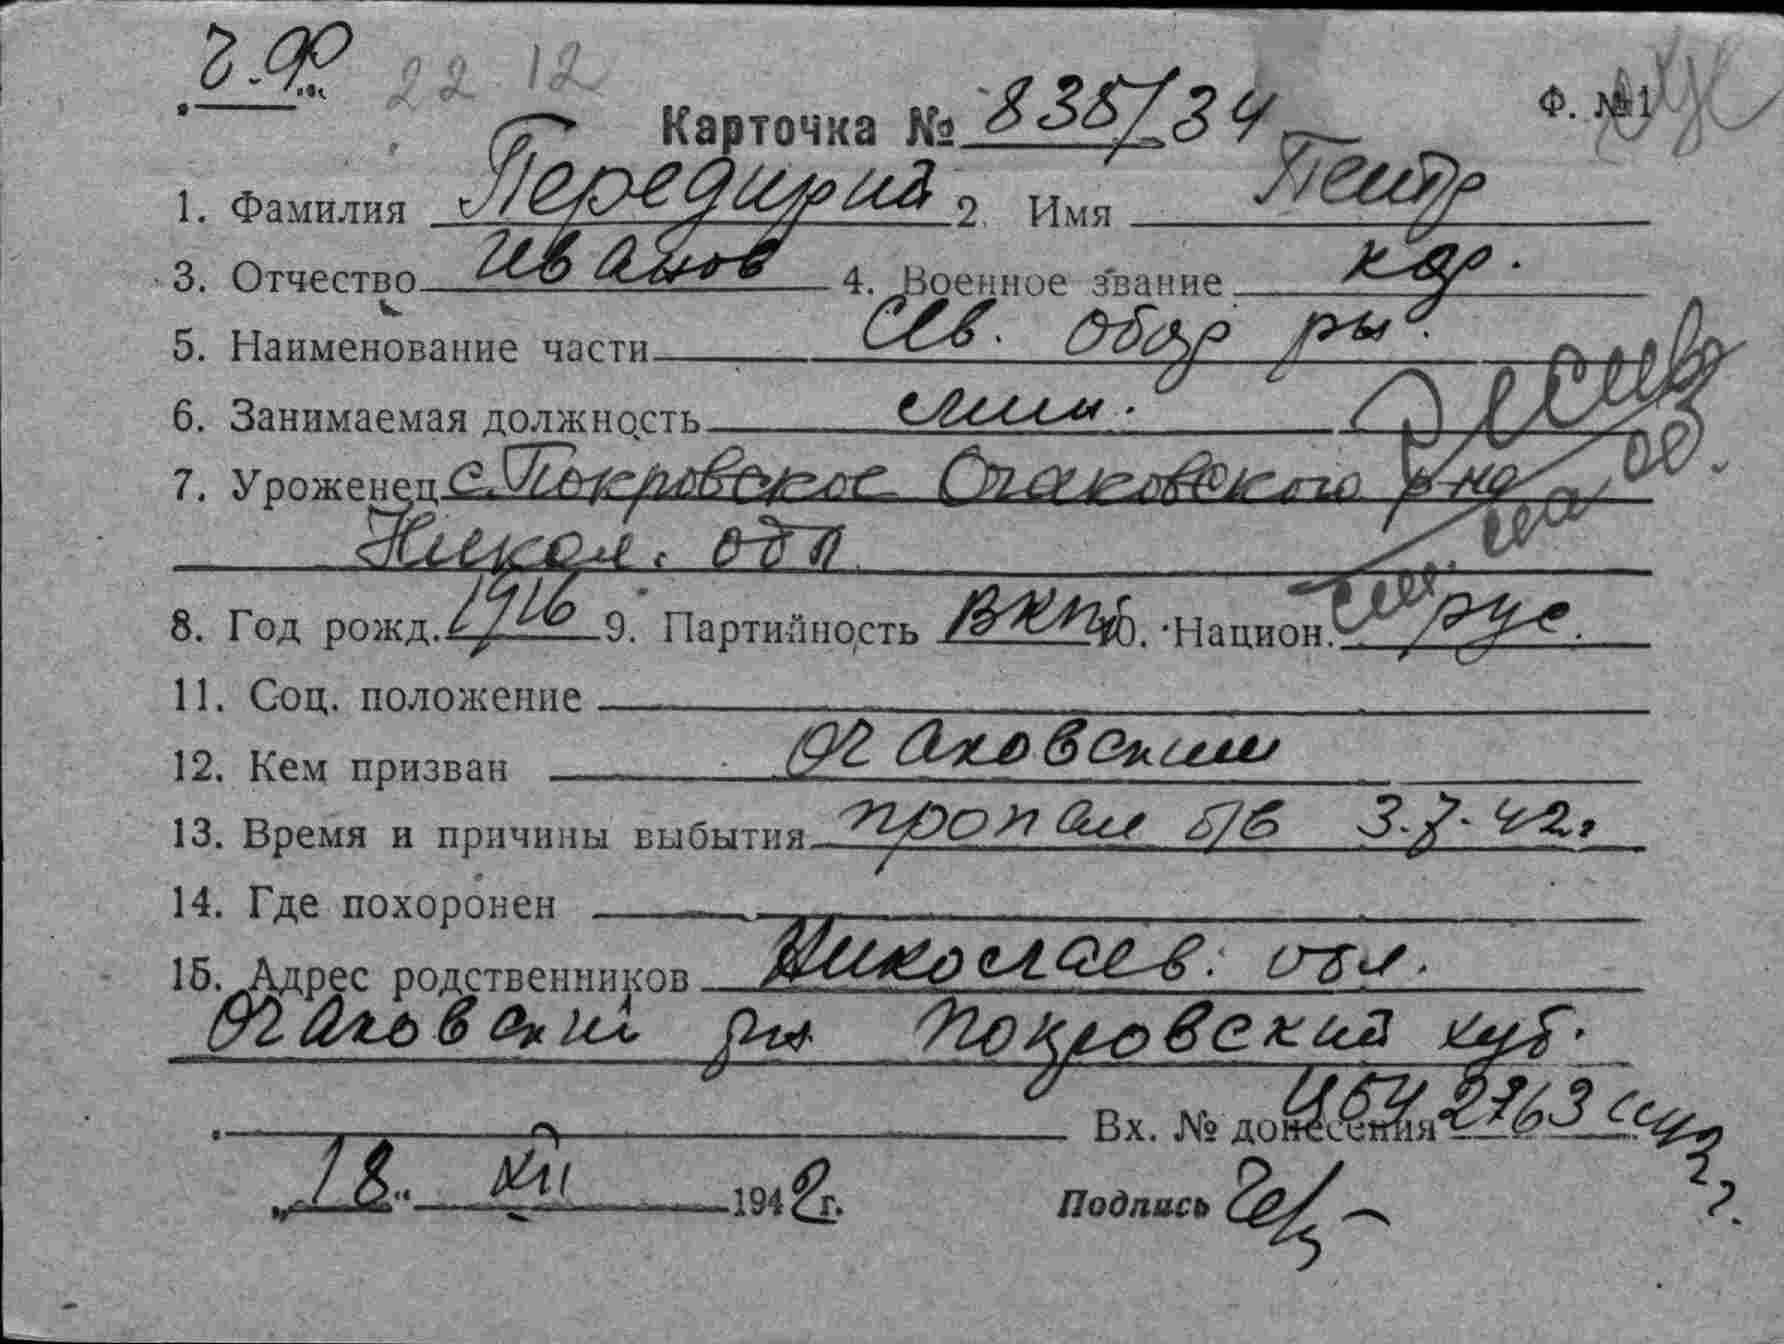 Ч.Ф. 22 12
Карточка № 835/34 Ф. №1
1. Фамилия Передирий 2. Имя Петр
3. Отчество Иванов 4. Военное звание кр.
5. Наименование части Сев. обор ры.
6. Занимаемая должность
7. Уроженец с. Покровское Очаковского р-на
Никол. обл
8. Год рожд. 1916 9. Партийность ВКПб 10. Национ. рус.
11. Соц. положение
12. Кем призван Очаковским
13. Время и причины выбытия пропал б/в 3.7.42г
14. Где похоронен
15. Адрес родственников Николаев. обл.
Очаковский рн Покровский хут.
Вх. № донесения 2763
„18" XII 1942 г. Подпись